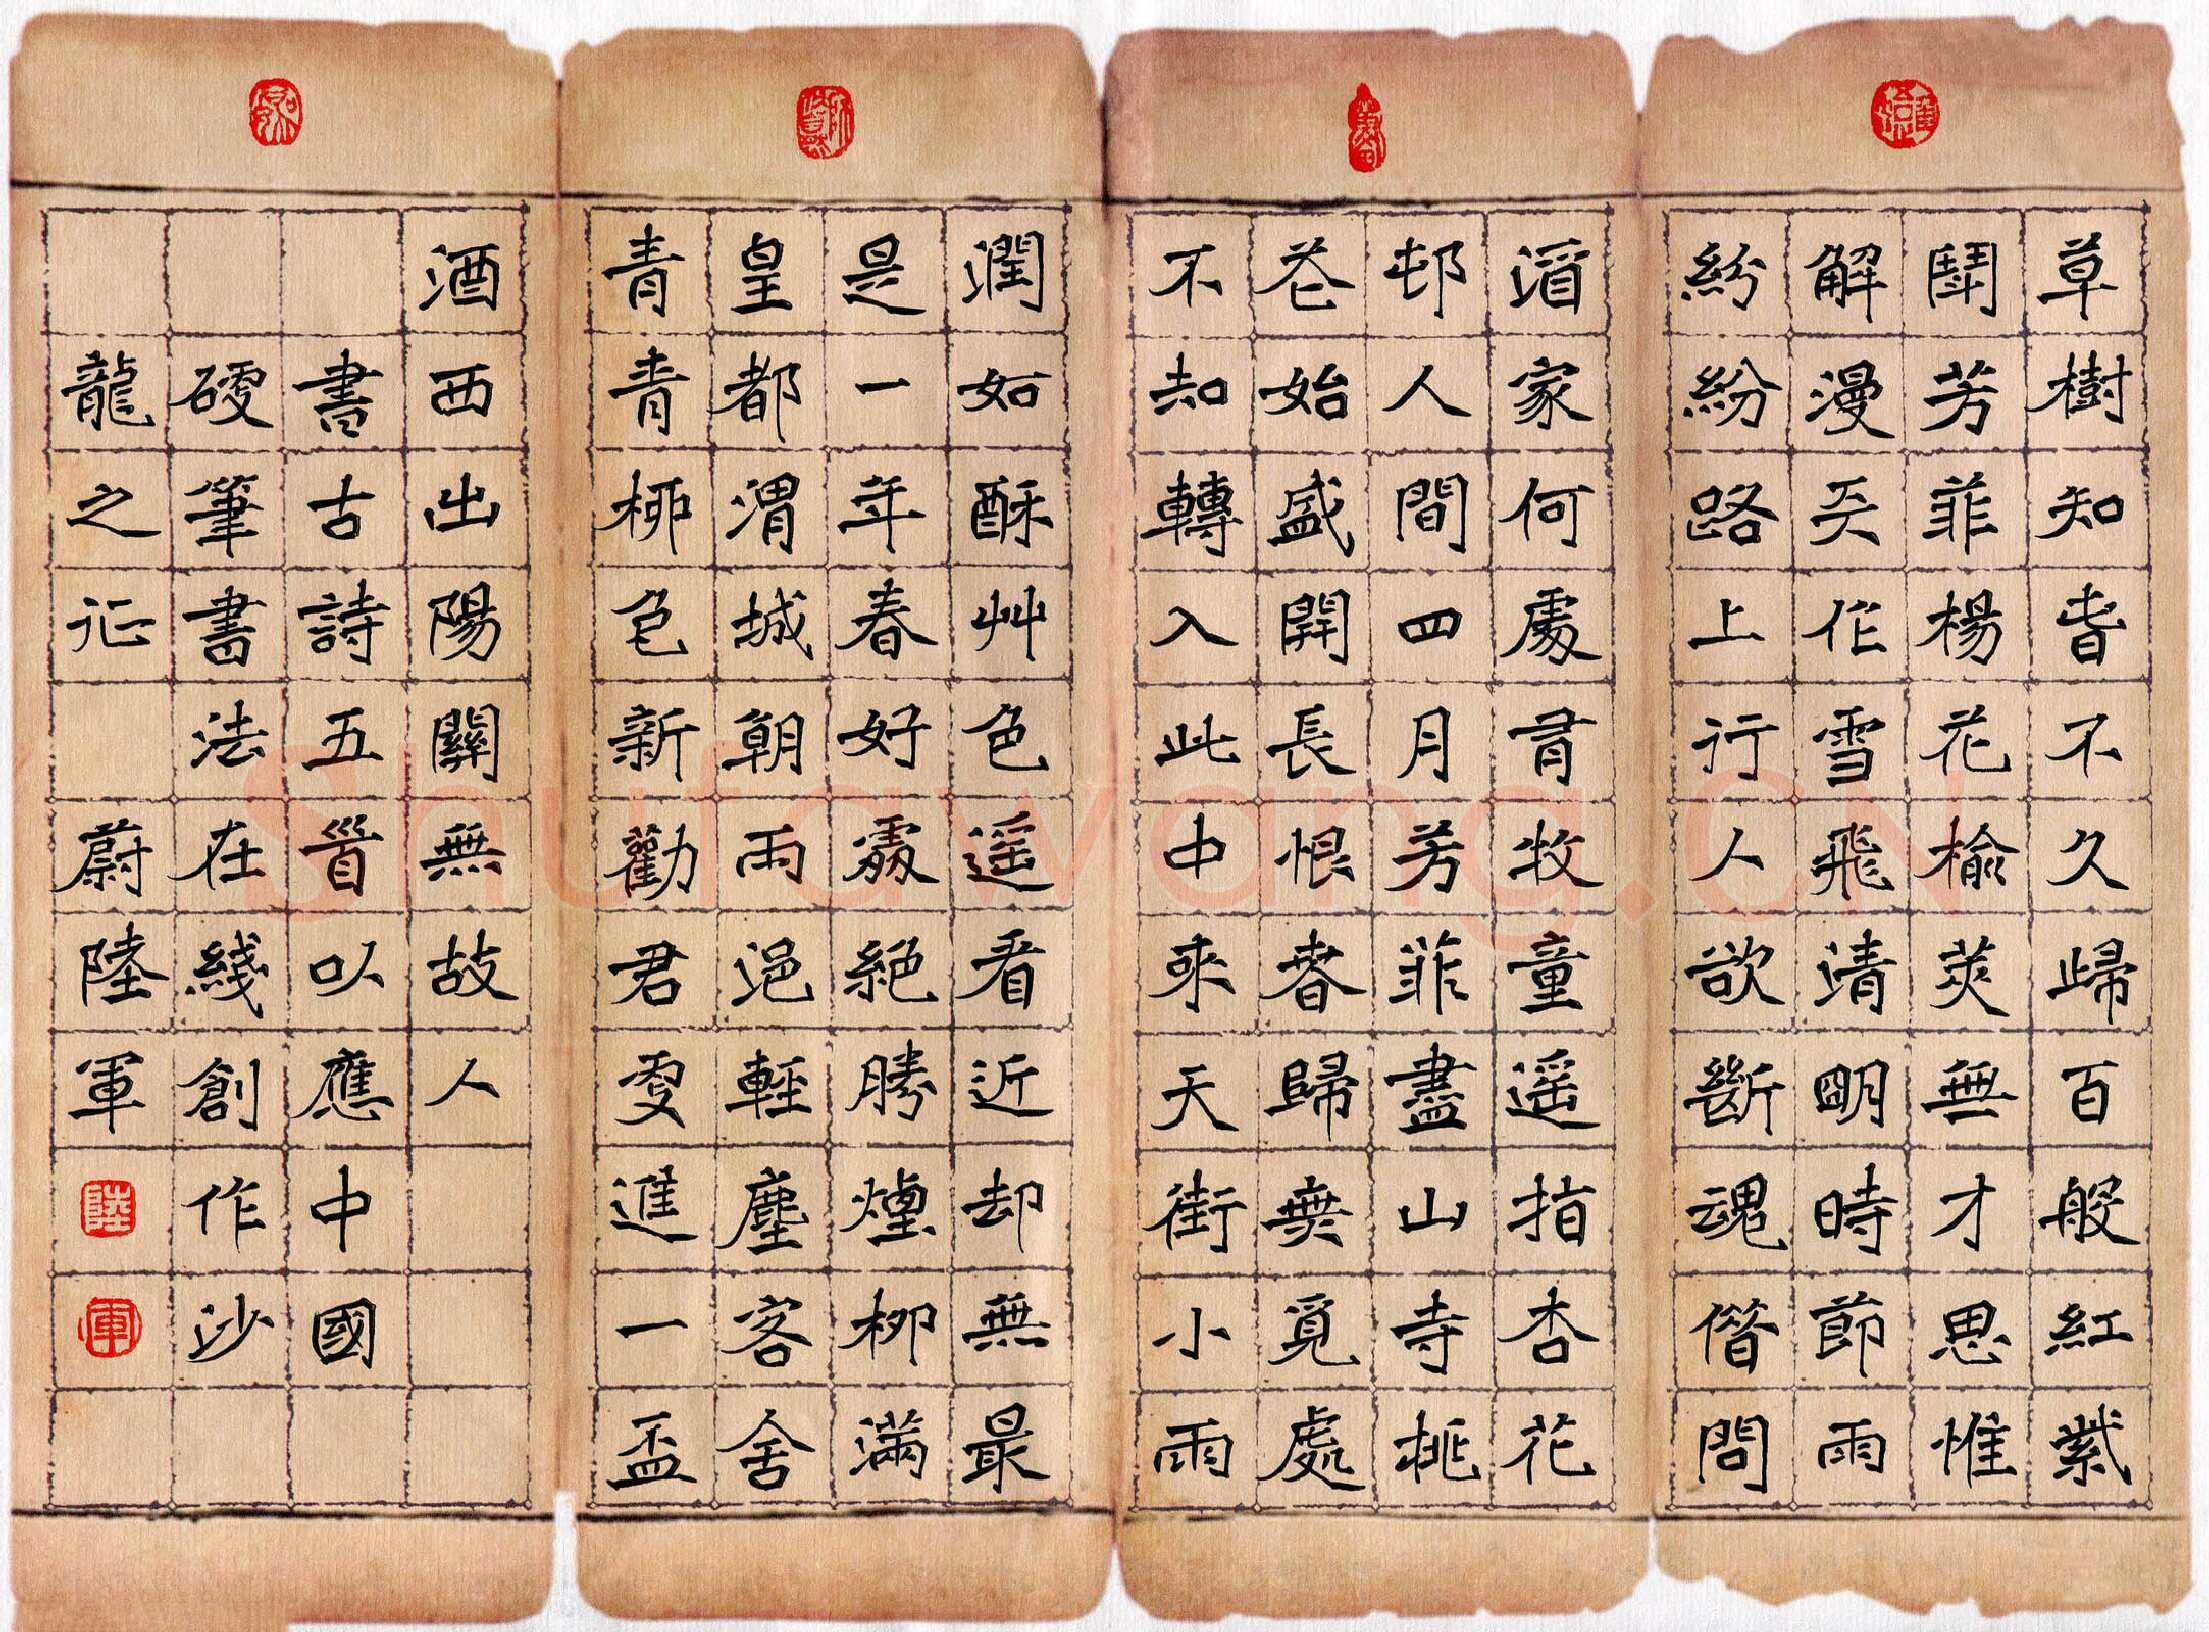 草樹知旾不久歸百般紅紫
鬥芳菲楊花榆莢無才思惟
解漫天作雪飛清明時節雨
紛紛路上行人欲斷魂借問
酒家何處有牧童遥指杏花
邨人間四月芳菲盡山寺桃
花始盛開長恨春歸無覓處
不知轉入此中來天街小雨
潤如酥艸色遥看近却無最
是一年春好處絕勝煙柳滿
皇都渭城朝雨浥輕塵客舍
青青柳色新勸君更進一盃
酒西出陽關無故人
書古詩五首以應中國
硬筆書法在綫創作沙
龍之征 蔚陸軍
陸
軍
Shufawang.CN